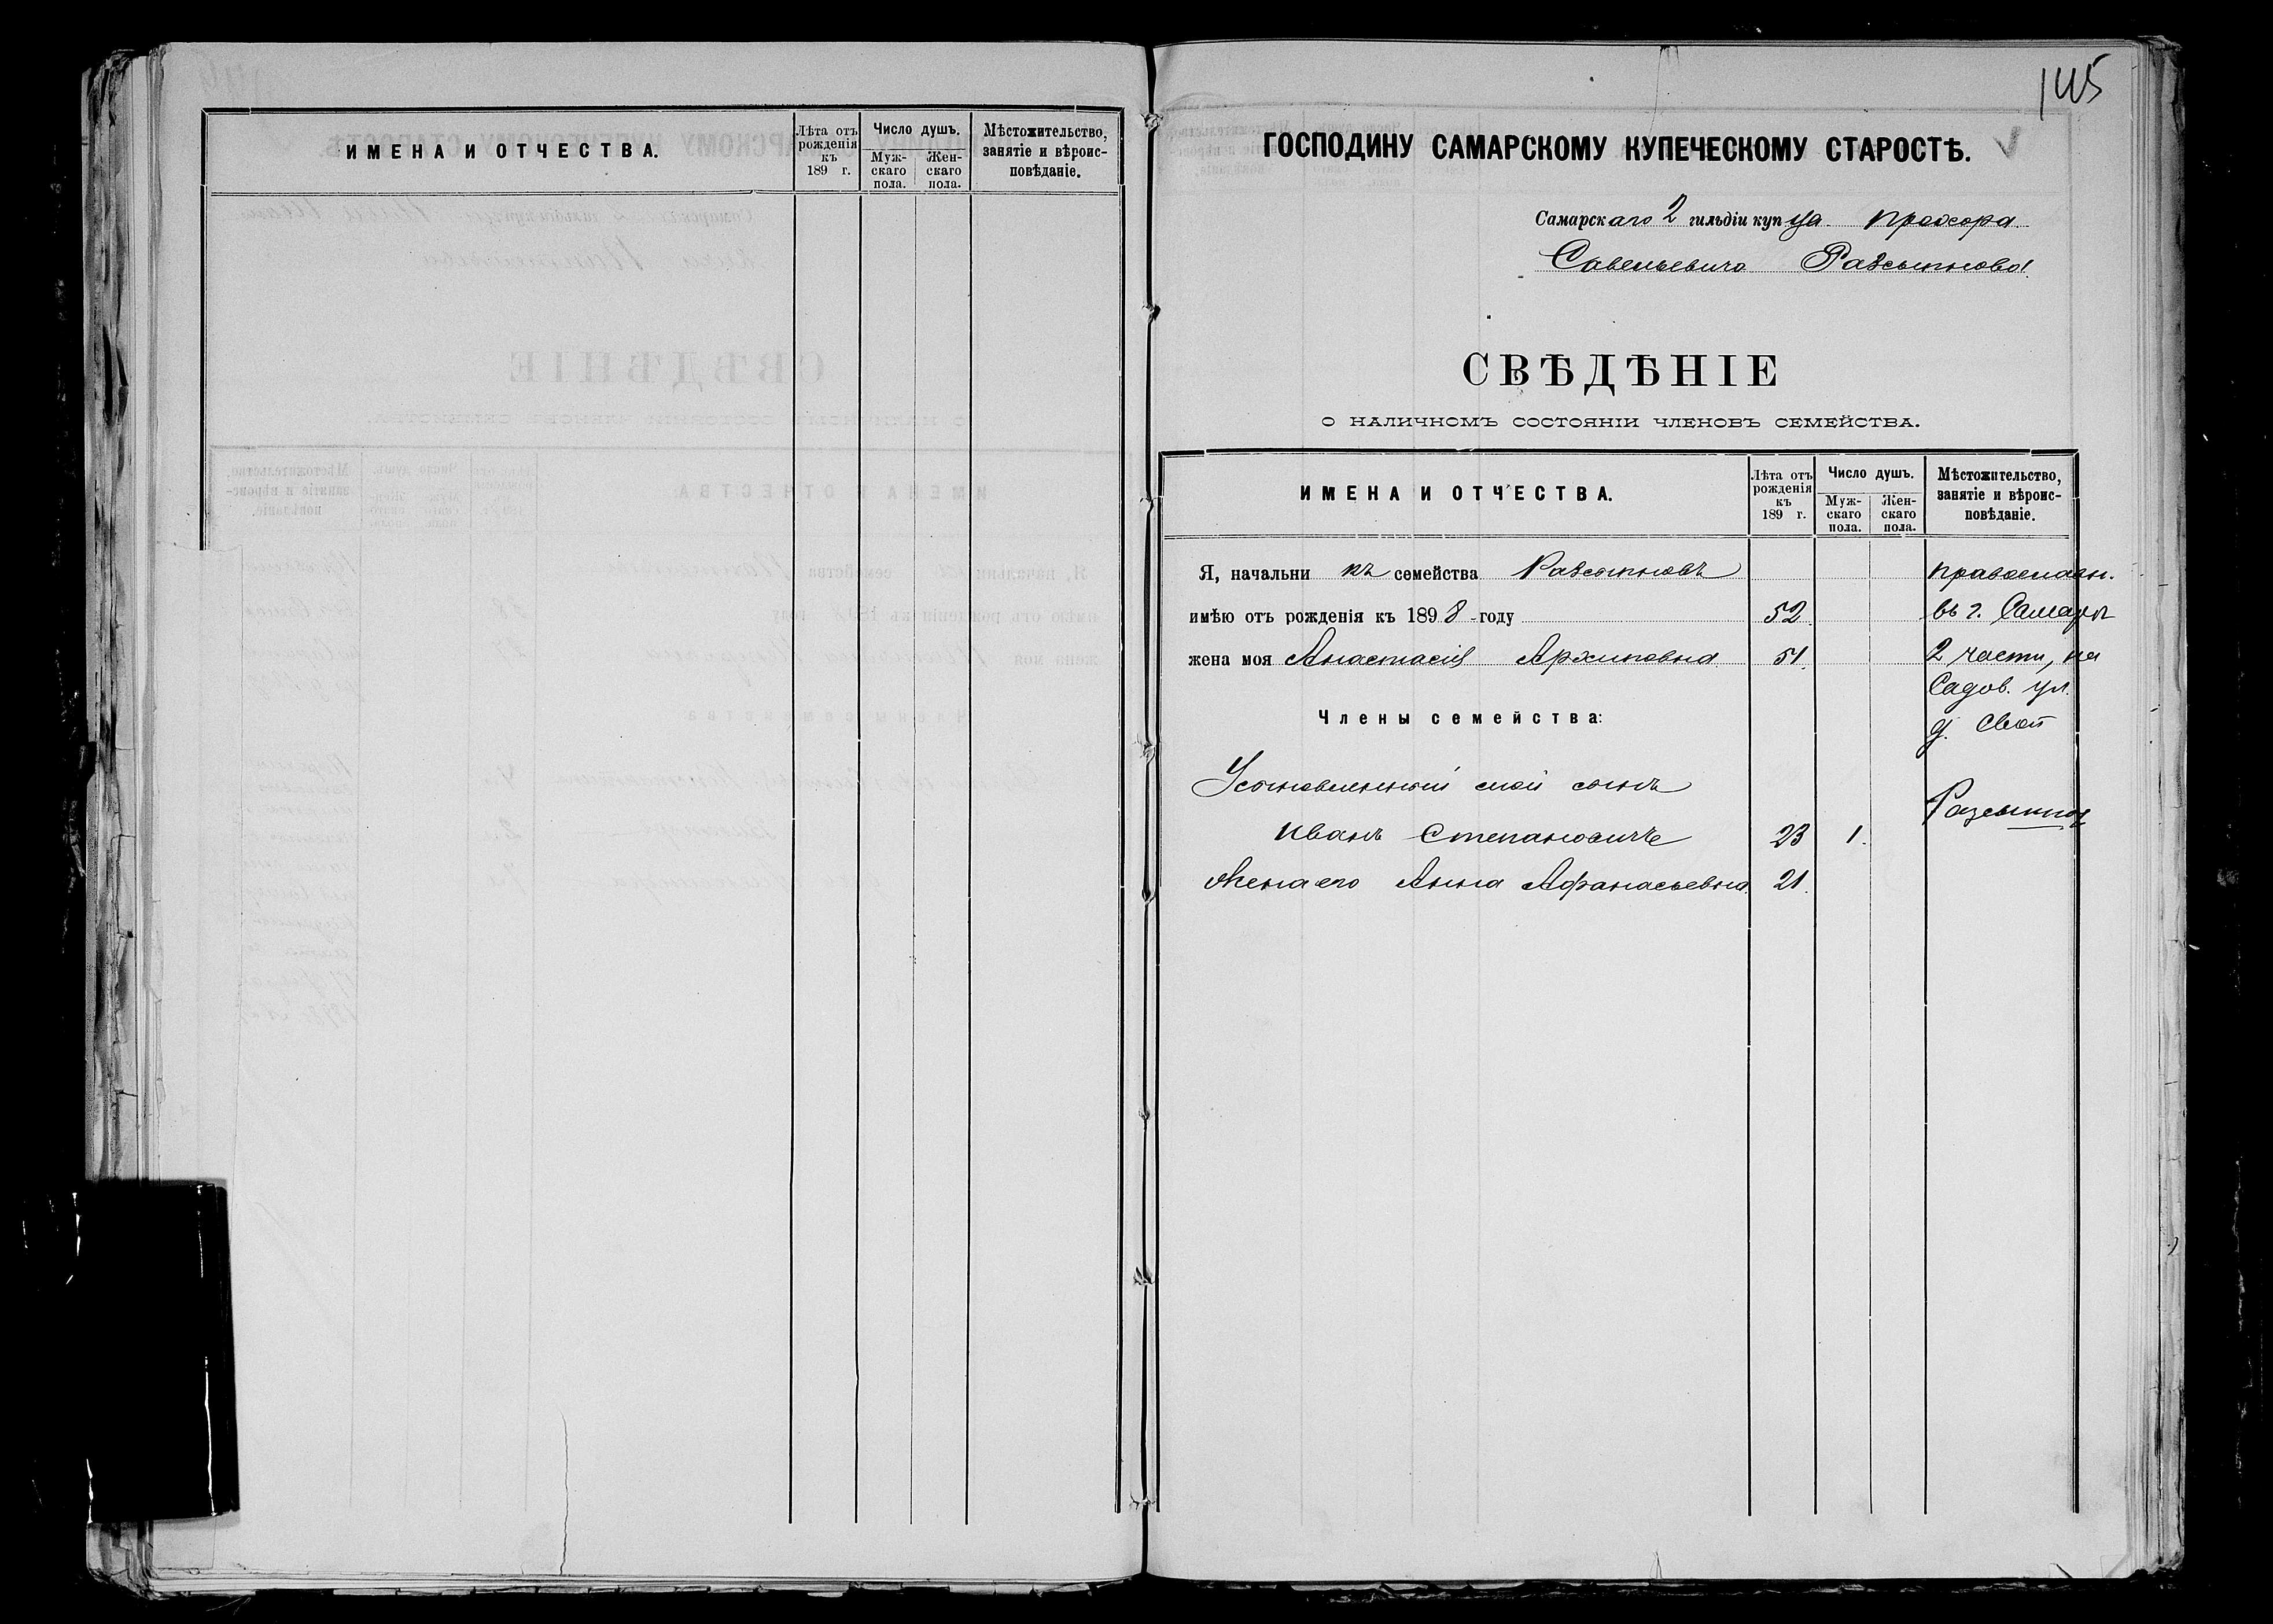 ИМЕНА И ОТЧЕСТВА.
Лѣта отъ рожденія къ 189 г.
Число душъ.
Муж-скаго пола.
Жен-скаго пола.
Мѣстожительство, занятіе и вѣроис-повѣданіе.
145
ГОСПОДИНУ САМАРСКОМУ КУПЕЧЕСКОМУ СТАРОСТѢ.
Самарскаго 2 гильдіи купца Прохора
Савельевича Разсыпнова
СВѢДѢНІЕ
О НАЛИЧНОМЪ СОСТОЯНІИ ЧЛЕНОВЪ СЕМЕЙСТВА.
ИМЕНА И ОТЧЕСТВА.
Лѣта отъ рожденія къ 189 г.
Число душъ.
Муж-скаго пола.
Жен-скаго пола.
Мѣстожительство, занятіе и вѣроис-повѣданіе.
Я, начальникъ семейства Разсыпновъ православн.
имѣю отъ рожденія къ 1898 году 52 въ г. Самарѣ
жена моя Анастасія Архиповна 51. 2 части, на
Садов. ул.
Члены семейства: д. свой
Усыновленный мой сынъ
Разсыпнов
Иванъ Степановичъ 23 1.
Жена его Анна Афанасьевна 21.